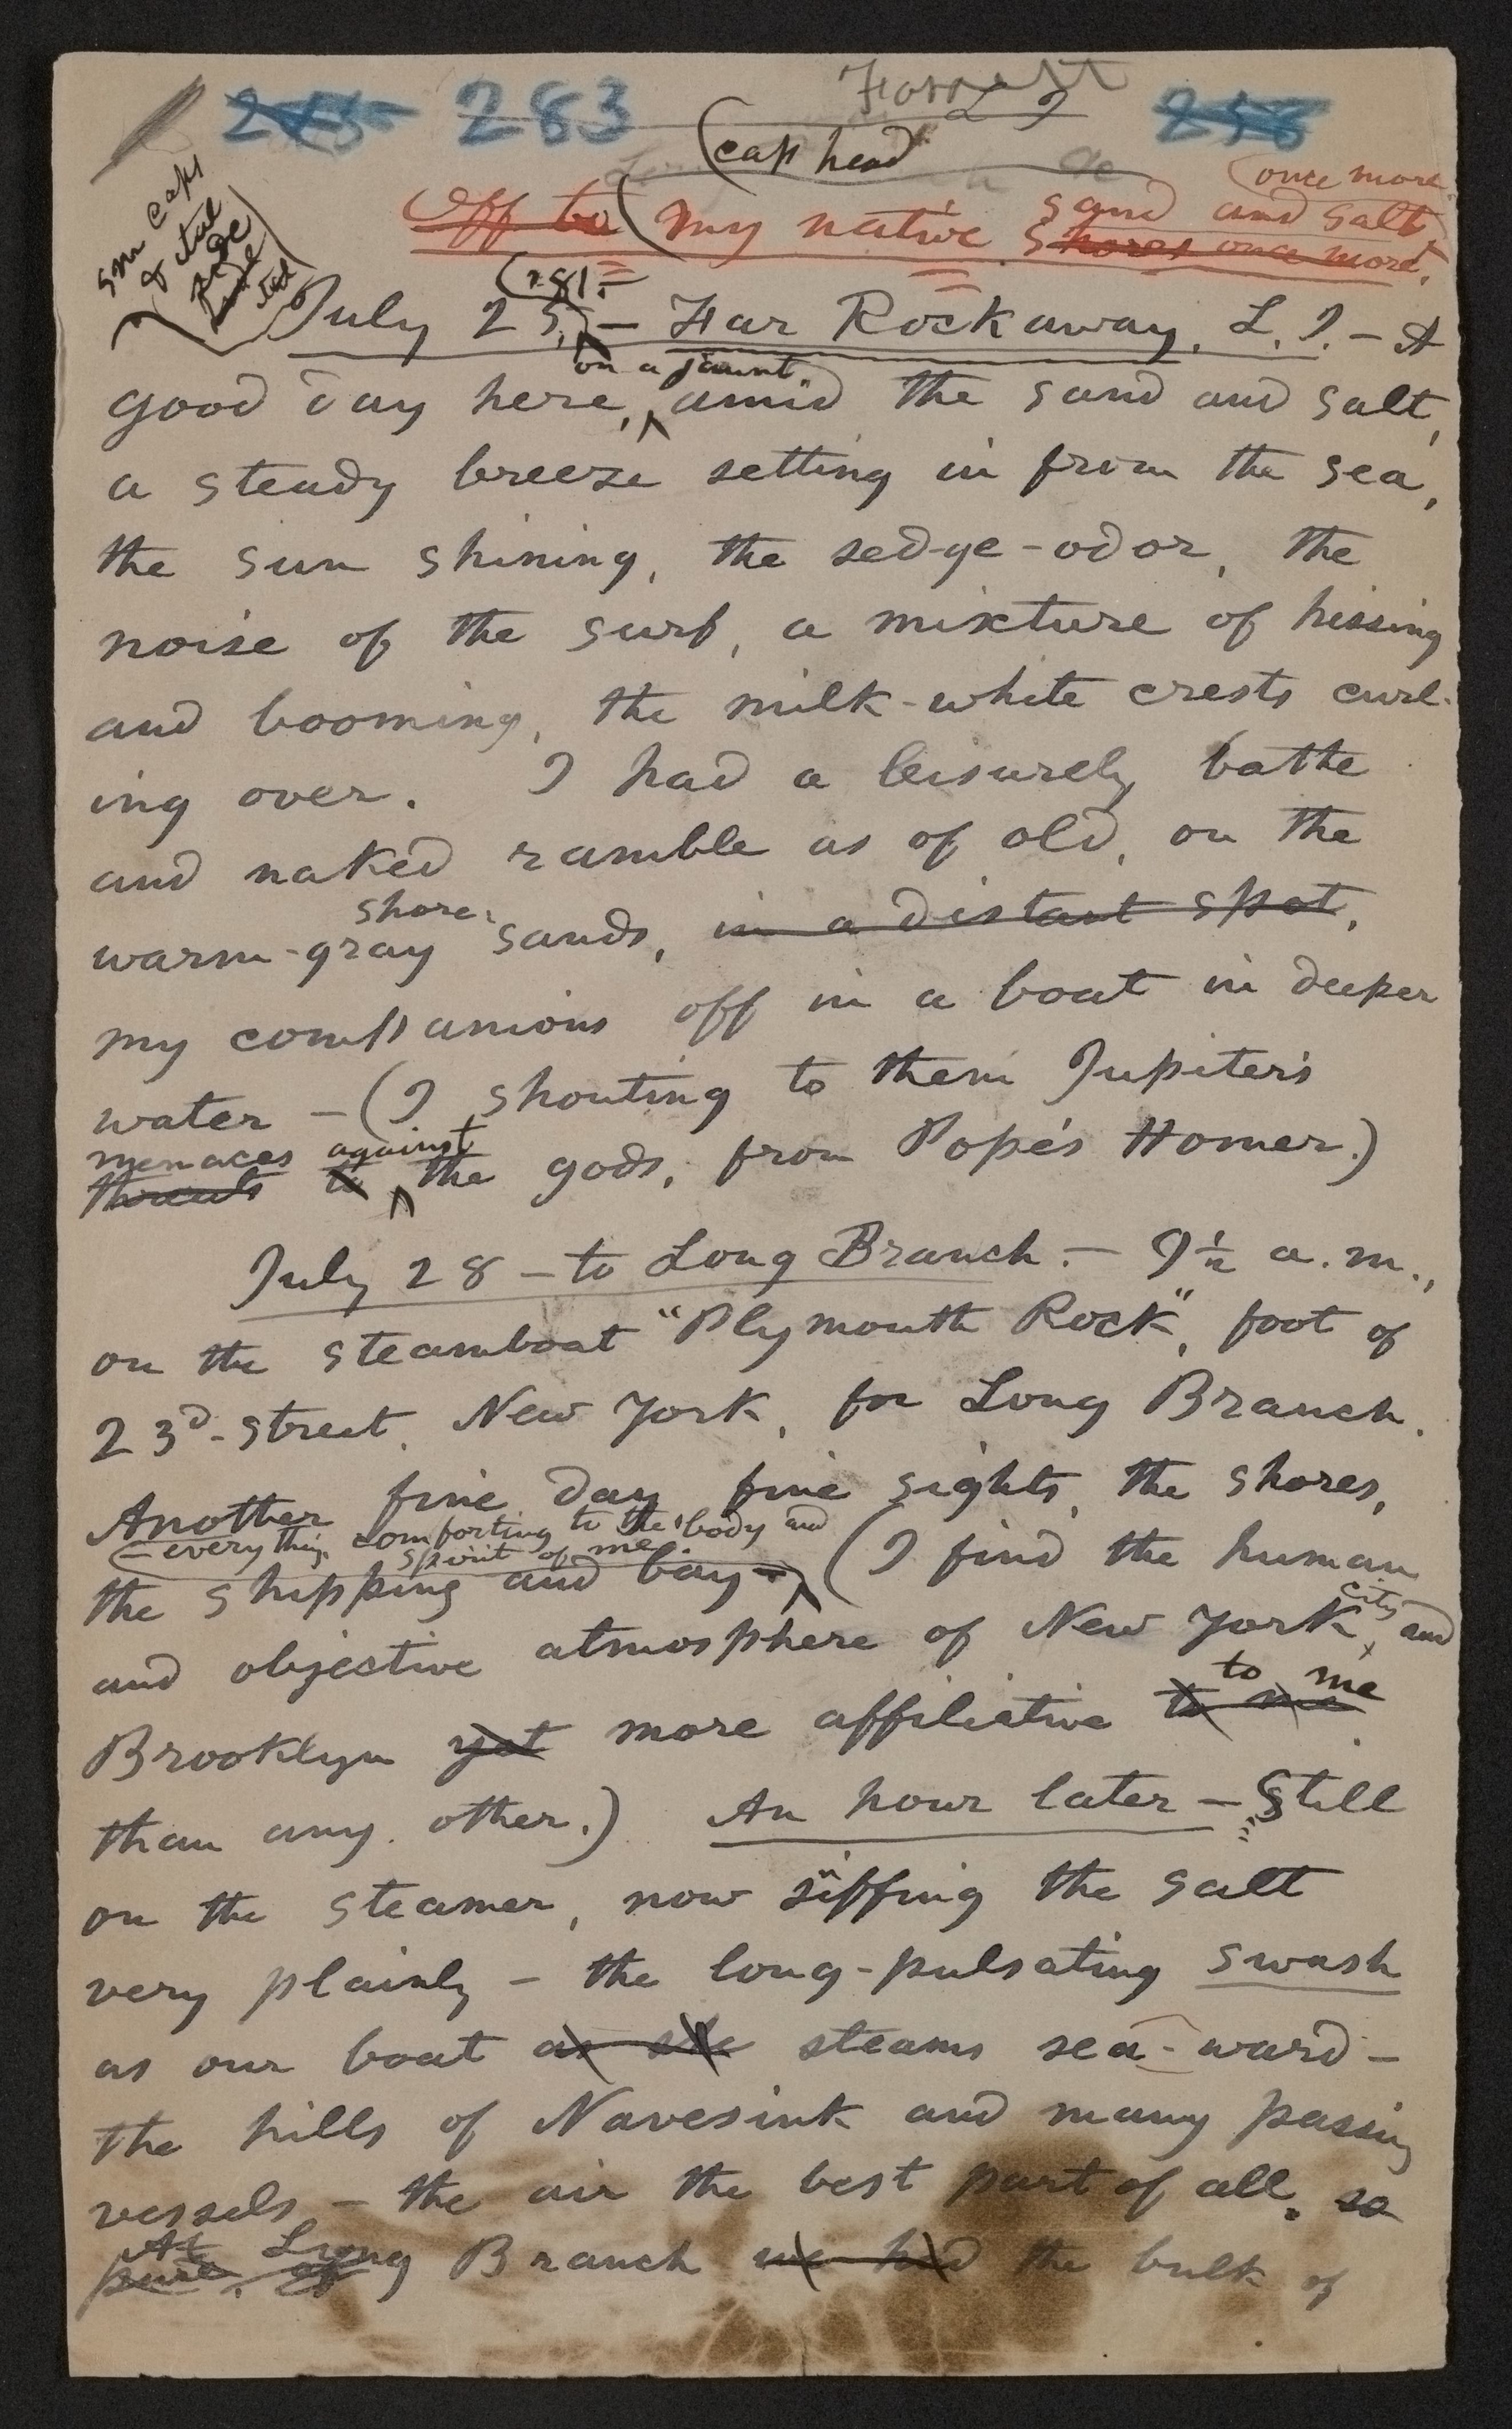 283
Forrest
(cap head
once more
Off to (my native sand and salt
shores once more.
sm caps
& ital
(281.
July 25, – Far Rockaway, L. I. – A
on a jaunt,
good day here, amid the sand and salt,
a steady breeze setting in from the sea,
the sun shining, the sedge-odor, the
noise of the surf, a mixture of hissing
and booming, the milk-white crests curl-
ing over. I had a leisurely bathe
and naked ramble as of old, on the
shore-
warm-gray sands, in a distant spot,
my companions off in a boat in deeper
water – (I shouting to them Jupiter's
menaces against
threats to the gods, from Pope's Homer.)
July 28 – to Long Branch. – 9½ a.m.,
on the steamboat "Plymouth Rock", foot of
23d-street, New York, for Long Branch.
Another fine day, fine sights, the shores,
– everything comforting to the body and
spirit of me
the shipping and bay – (I find the human
city
and objective atmosphere of New York, and
to me
Brooklyn yet more affiliative to me
than any other.) An hour later – Still
on the steamer, now siffing the salt
very plainly – the long-pulsating swash
as our boat as she steams sea-ward –
the hills of Navesink and many passing
vessels – the air the best part of all. so
At Long
pure. of Branch we had the bulk of